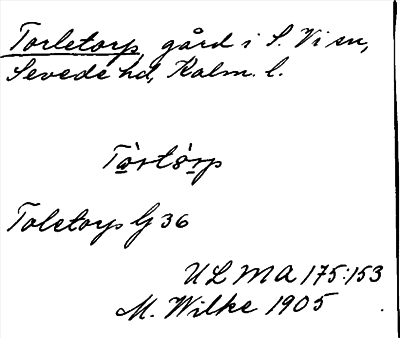 Torletorp, gård i S. Vi sn,
Sevede hd, Kalm. l.
Tòrtórp
Toletorp G 36
ULMA 175:153
M. Wilke 1905